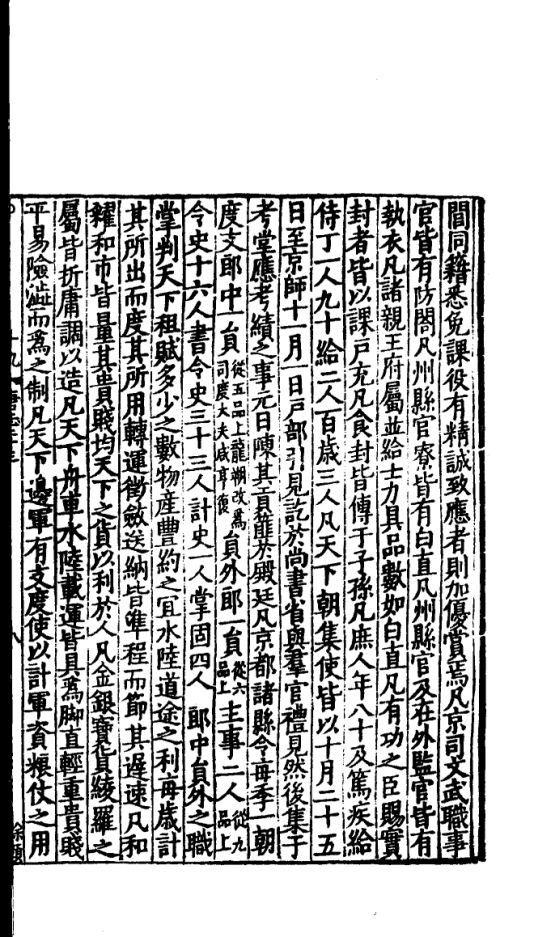 間同籍悉免課役有精誠致應者則加優賞焉凡京司文武職事
官皆有防閤凡州縣官寮皆有白直凡州縣官及在外監官皆有
執衣凡諸親王府屬並給士力具品數如白直凡有功之臣賜實
封者皆以課戶充凡食封皆傳于子孫凡庶人年八十及篤疾給
侍丁一人九十給二人百歲三人凡天下朝集使皆以十月二十五
日至京師十一月一日戶部引見訖於尚書省與羣官禮見然後集于
考堂應考績之事元日陳其貢篚於殿廷凡京都諸縣令每季一朝
度支郎中一員從五品上龍朔改為司度大夫咸亨復員外郎一員從六品上主事二人從九品上
令史十六人書令史三十三人計史一人掌固四人 郎中員外之職
掌判天下租賦多少之數物產豐約之宜水陸道途之利每歲計
其所出而度其所用轉運徵斂送納皆準程而節其遲速凡和
糴和市皆量其貴賤均天下之貨以利於人凡金銀寶貨綾羅之
屬皆折庸調以造凡天下舟車水陸載運皆具為脚直輕重貴賤
平易險澁而為之制凡天下邊軍有支度使以計軍資粮仗之用